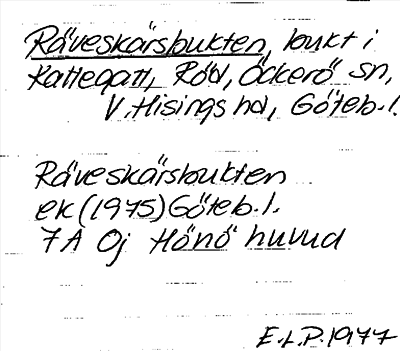 Räveskärsbukten, bukt i
Kattegatt, Röd, Öckerö sn,
V. Hisings hd, Göteb. l.
Räveskärsbukten
ek (1975) Göteb. l.
7 A 0j Hönö huvud
E.L.P. 1977